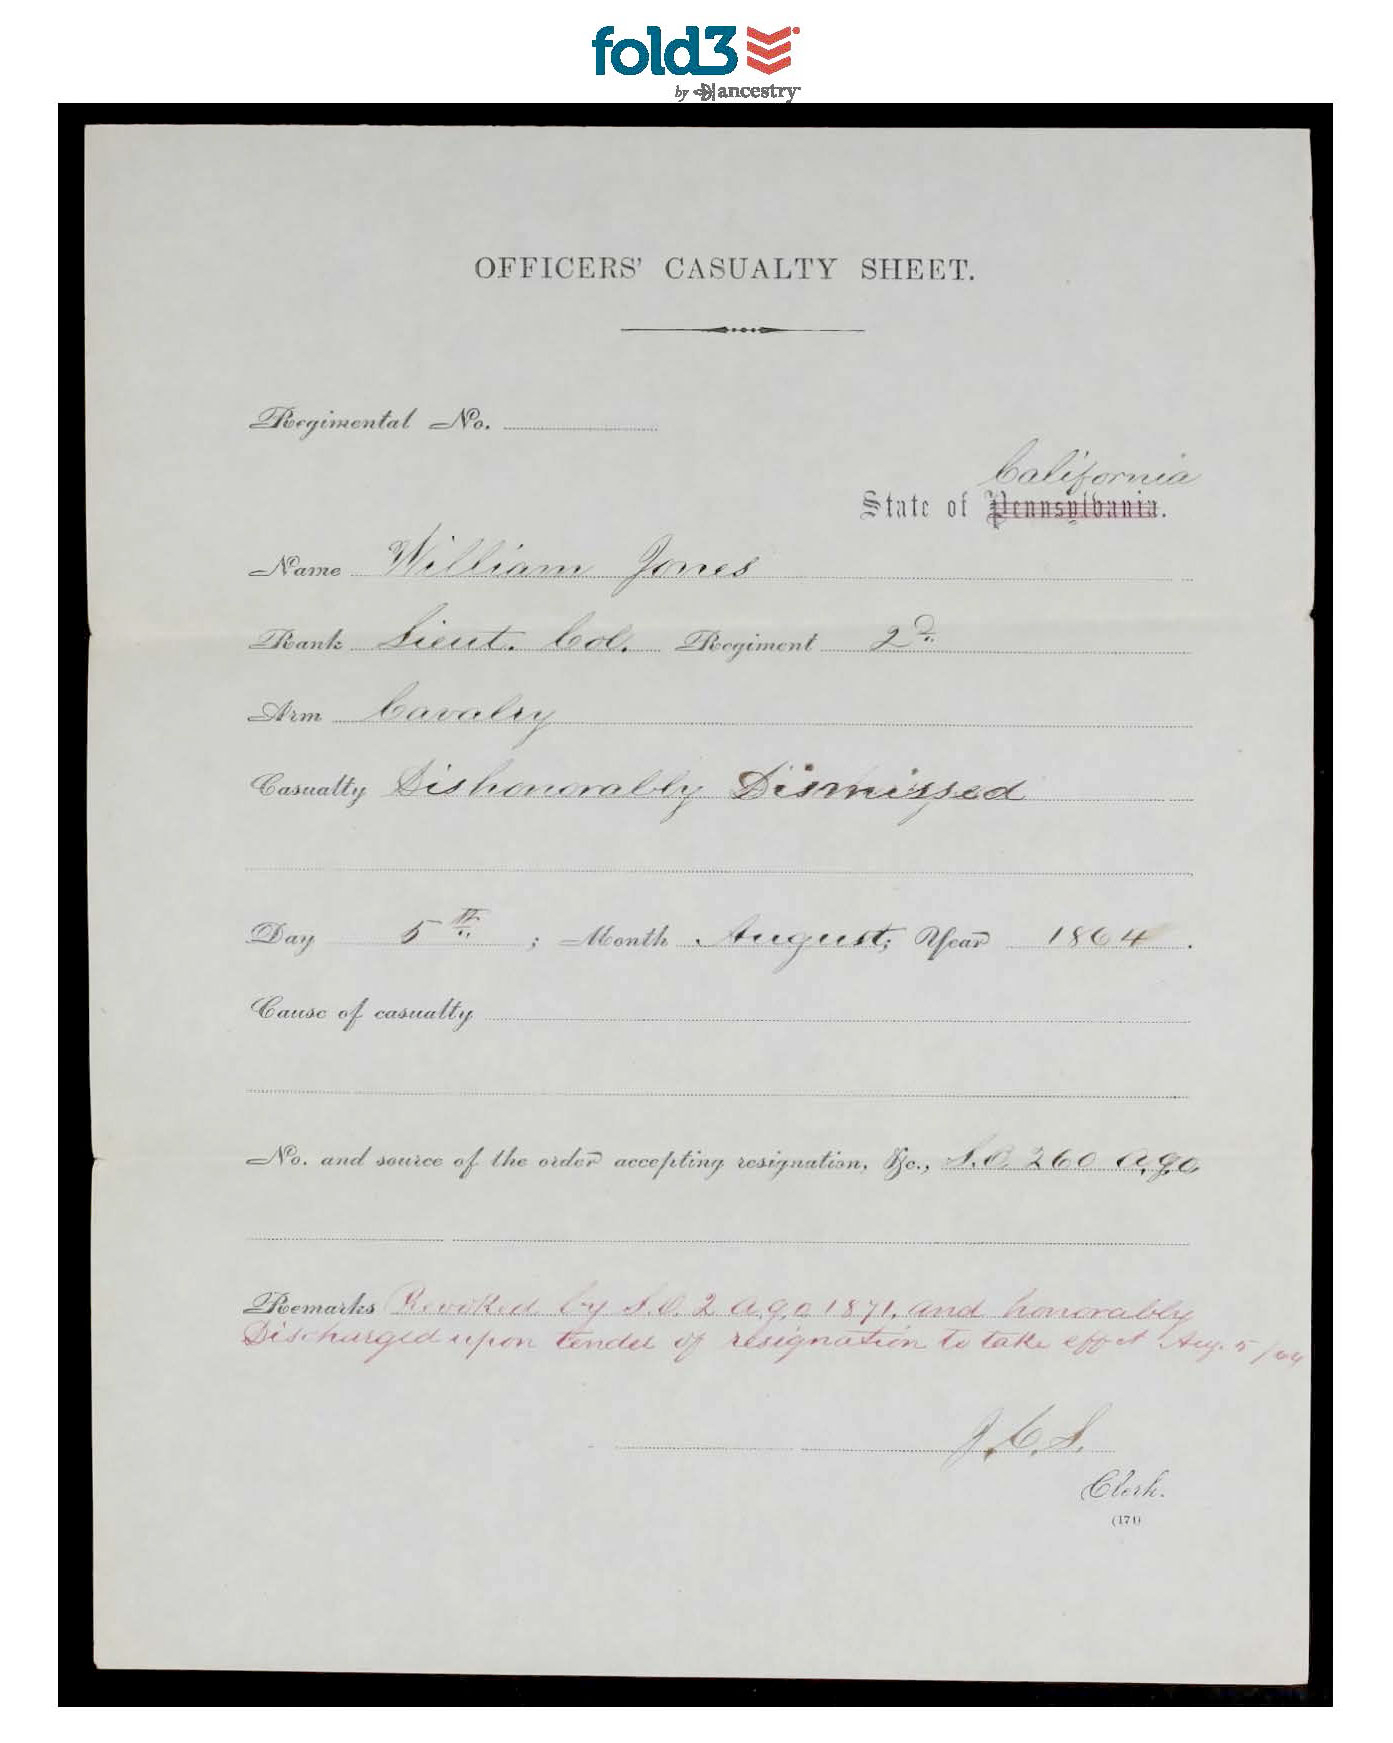 fold3
by ancestry
OFFICERS' CASUALTY SHEET.
Regimental No.
California
State of Pennsylvania.
Name William Jones
Rank Lieut. Col. Regiment 2d
Arm Cavalry
Casualty Dishonorably Dismissed
Day 5th ; Month August; Year 1864.
Cause of casualty
No. and source of the order accepting resignation, &c., S.O. 260 A.G.O.
Remarks Revoked by S.O. 2 A.G.O 1871, and honorably
Discharged upon tender of resignation to take effect Aug. 5/64
J.C.S.
Clerk.
(171)